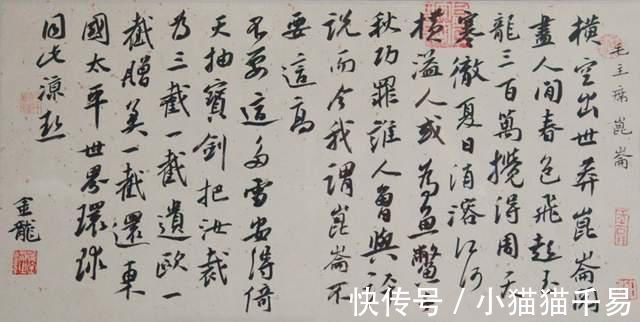 毛主席崑崙
橫空出世莽崑崙閱
盡人間春色飛起玉
龍三百萬攪得周天
寒徹夏日消溶江河
橫溢人或為魚鱉千
秋功罪誰人曾與評
說而今我謂崑崙不
要這高
不要這多雪安得倚
天抽寶劍把汝裁
為三截一截遺歐一
截贈美一截還東
國太平世界環球
同此涼熱
金龍
快传号 / 小猫猫千易